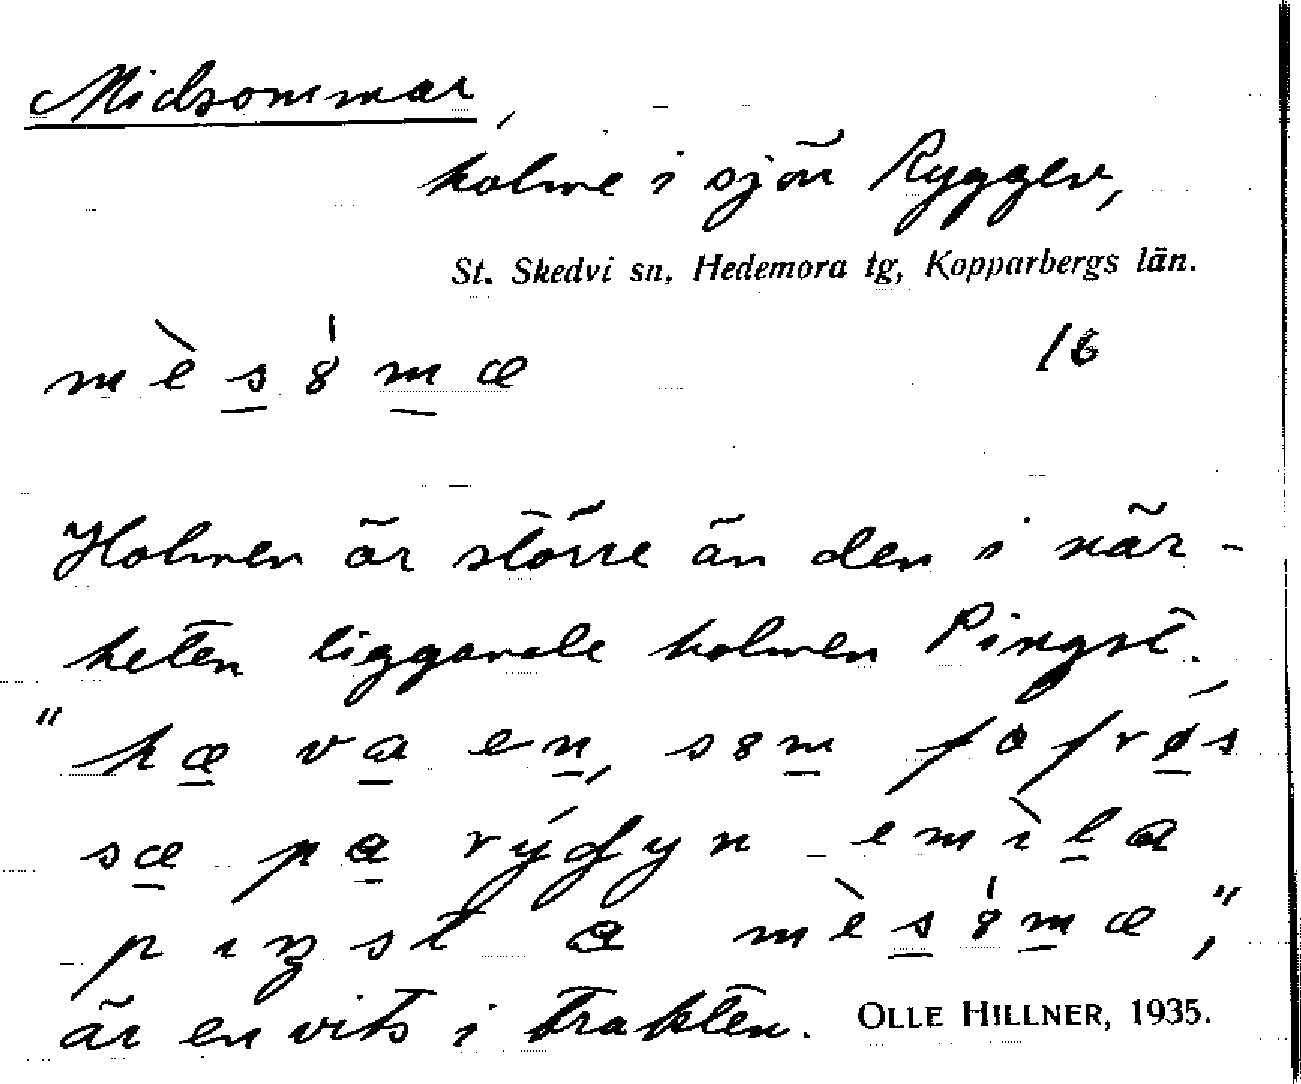 Midsommar,
holme i sjön Ryggen,
St. Skedvi sn, Hedemora tg, Kopparbergs län.
mè̀s8̍mæ
16
Holmen är större än den i när-
heten liggande holmen Pingst.
"hæ va en, s8m fofrǿs
sæ pa rýgyn emìla
pıŋst a mè̀s8̍mæ",
är en vits i trakten.
OLLE HILLNER, 1935.